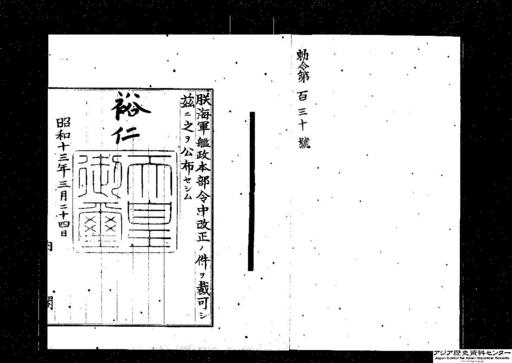 勅令第百三十號
朕海軍艦政本部令中改正ノ件ヲ裁可シ
茲ニ之ヲ公布セシム
裕仁
天皇御璽
昭和十三年三月二十四日
内閣
アジア歴史資料センター
Japan Center for Asian Historical Records